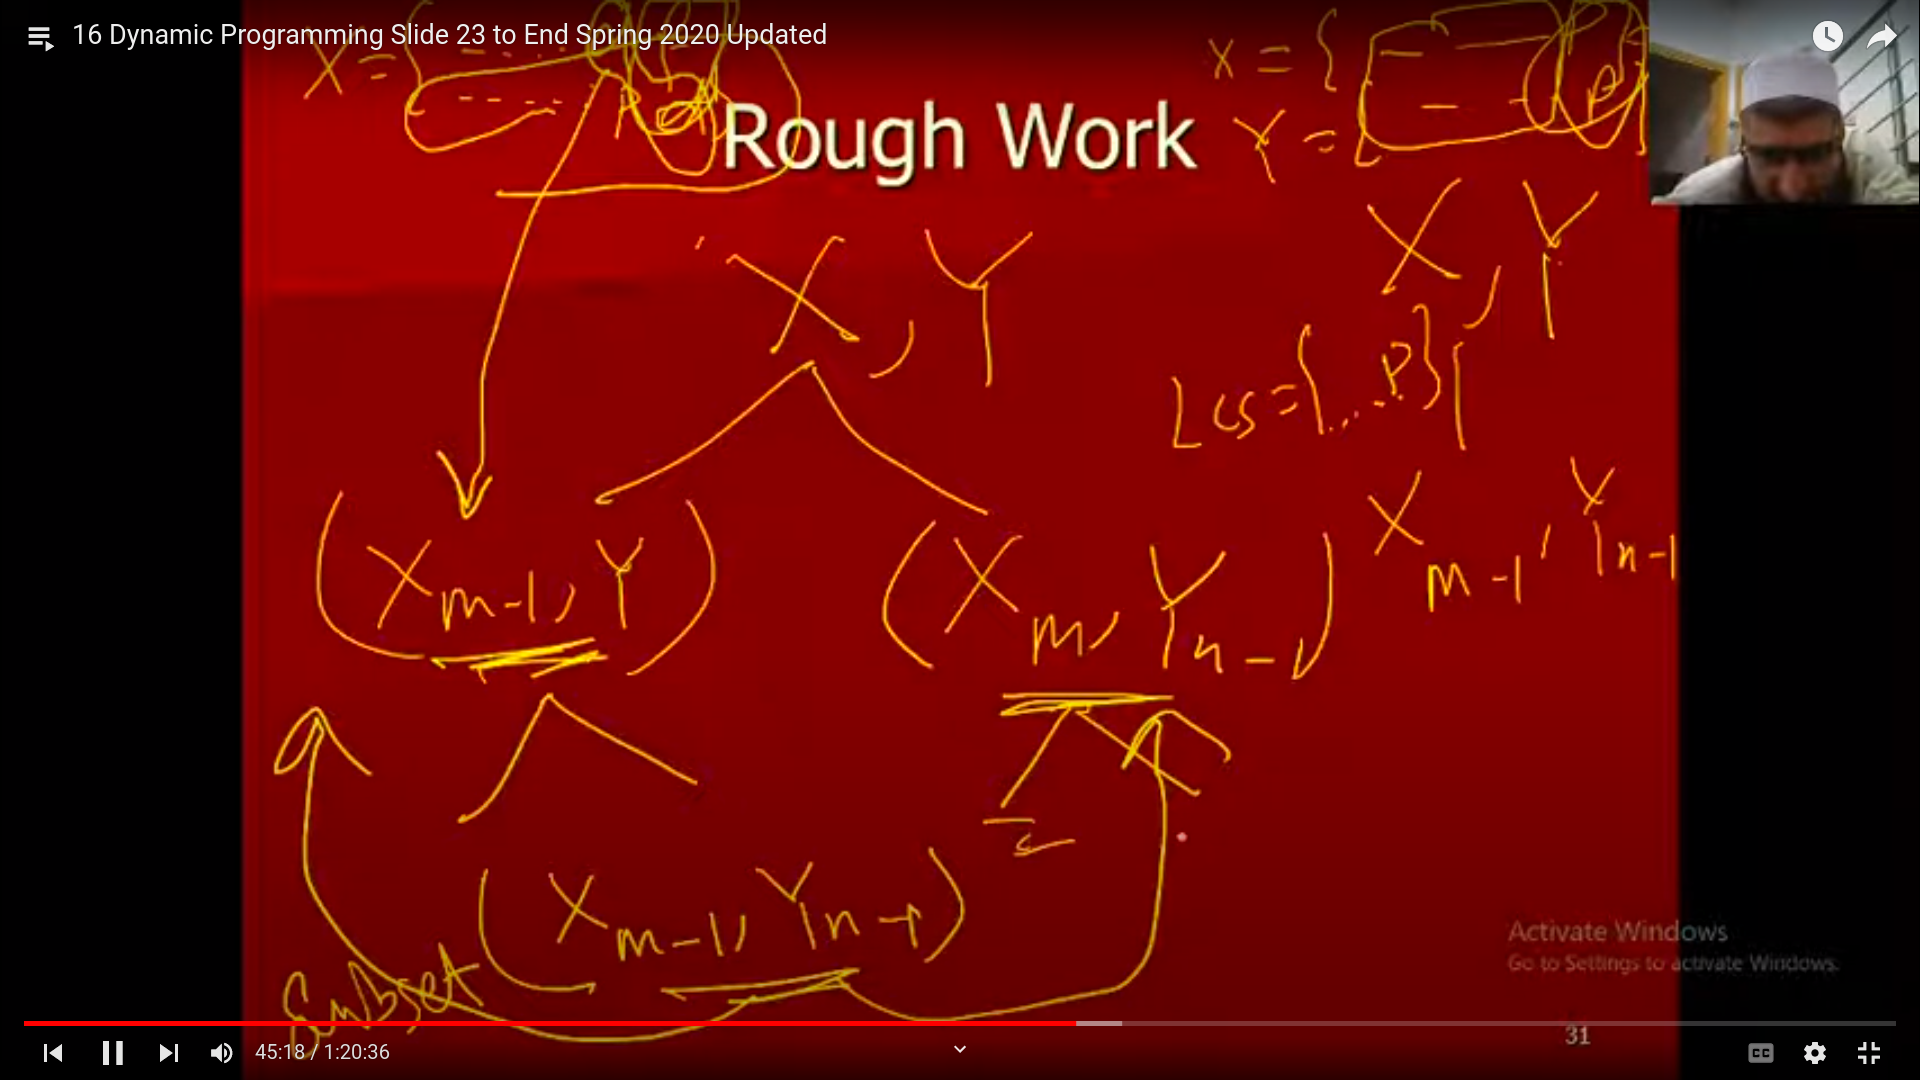 16 Dynamic Programming Slide 23 to End Spring 2020 Updated
X = {
X = {
Y = {
Rough Work
X, Y
X, Y
LCS = {...P}
(Xm-1, Y)
(Xm, Yn-1)
Xm-1, Yn-1
(Xm-1, Yn-1)
Subset
Activate Windows
Go to Settings to activate Windows.
31
45:18 / 1:20:36
CC